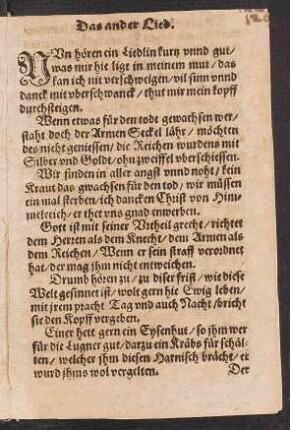 Das ander Lied.
NVn hören ein Liedlin kurtz vnnd gut/
was mir hie ligt in meinem mut/das
kan ich nit verschweigen/vil sinn vnnd
danck mit vberschwanck/thut mir mein kopff
durchsteigen.
Wenn etwas für den todt gewachsen wer/
staht doch der Armen Seckel lähr/möchten
des nicht geniessen/die Reichen wurdens mit
Silber vnd Goldt/ohn zweiffel vberschiessen.
Wir finden in aller angst vnnd noht/kein
Kraut das gwachsen für den tod/wir müssen
ein mal sterben/ich dancken Christ von Him-
melreich/er thet vns gnad erwerben.
Gott ist mit seiner Vrtheil grecht/richtet
dem Herren als dem Knecht/dem Armen als
dem Reichen/Wenn er sein straff verordnet
hat/der mag jhm nicht entweichen.
Drumb hören zu/zu diser frist/wie diese
Welt gesinnet ist/wolt gern hie Ewig leben/
mit jrem pracht Tag vnd auch Nacht/bricht
sie den Kopff vergeben.
Einer hett gern ein Eysenhut/so jhm wer
für die Lugner gut/darzu ein Kräbs für schäl-
ten/welcher jhm diesen Harnisch brächt/er
wurd jhms wol vergelten.
Der